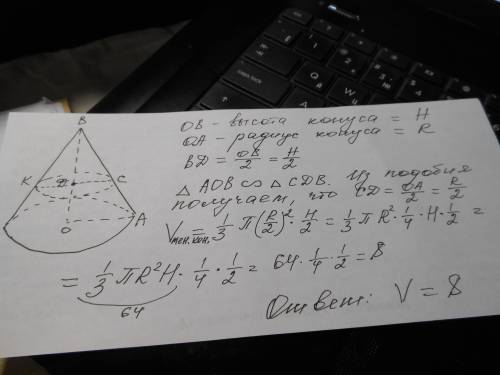 B
K
D
C
O
A
OB - высота конуса = H
OA - радиус конуса = R
BD = OB/2 = H/2
△ AOB ∽ △ CDB. Из подобия
получаем, что CD = OA/2 = R/2
Vмен.кон. = 1/3 π(R/2)² · H/2 = 1/3 πR² · 1/4 · H · 1/2 =
= 1/3 πR²H · 1/4 · 1/2 = 64 · 1/4 · 1/2 = 8
64
Ответ: V = 8